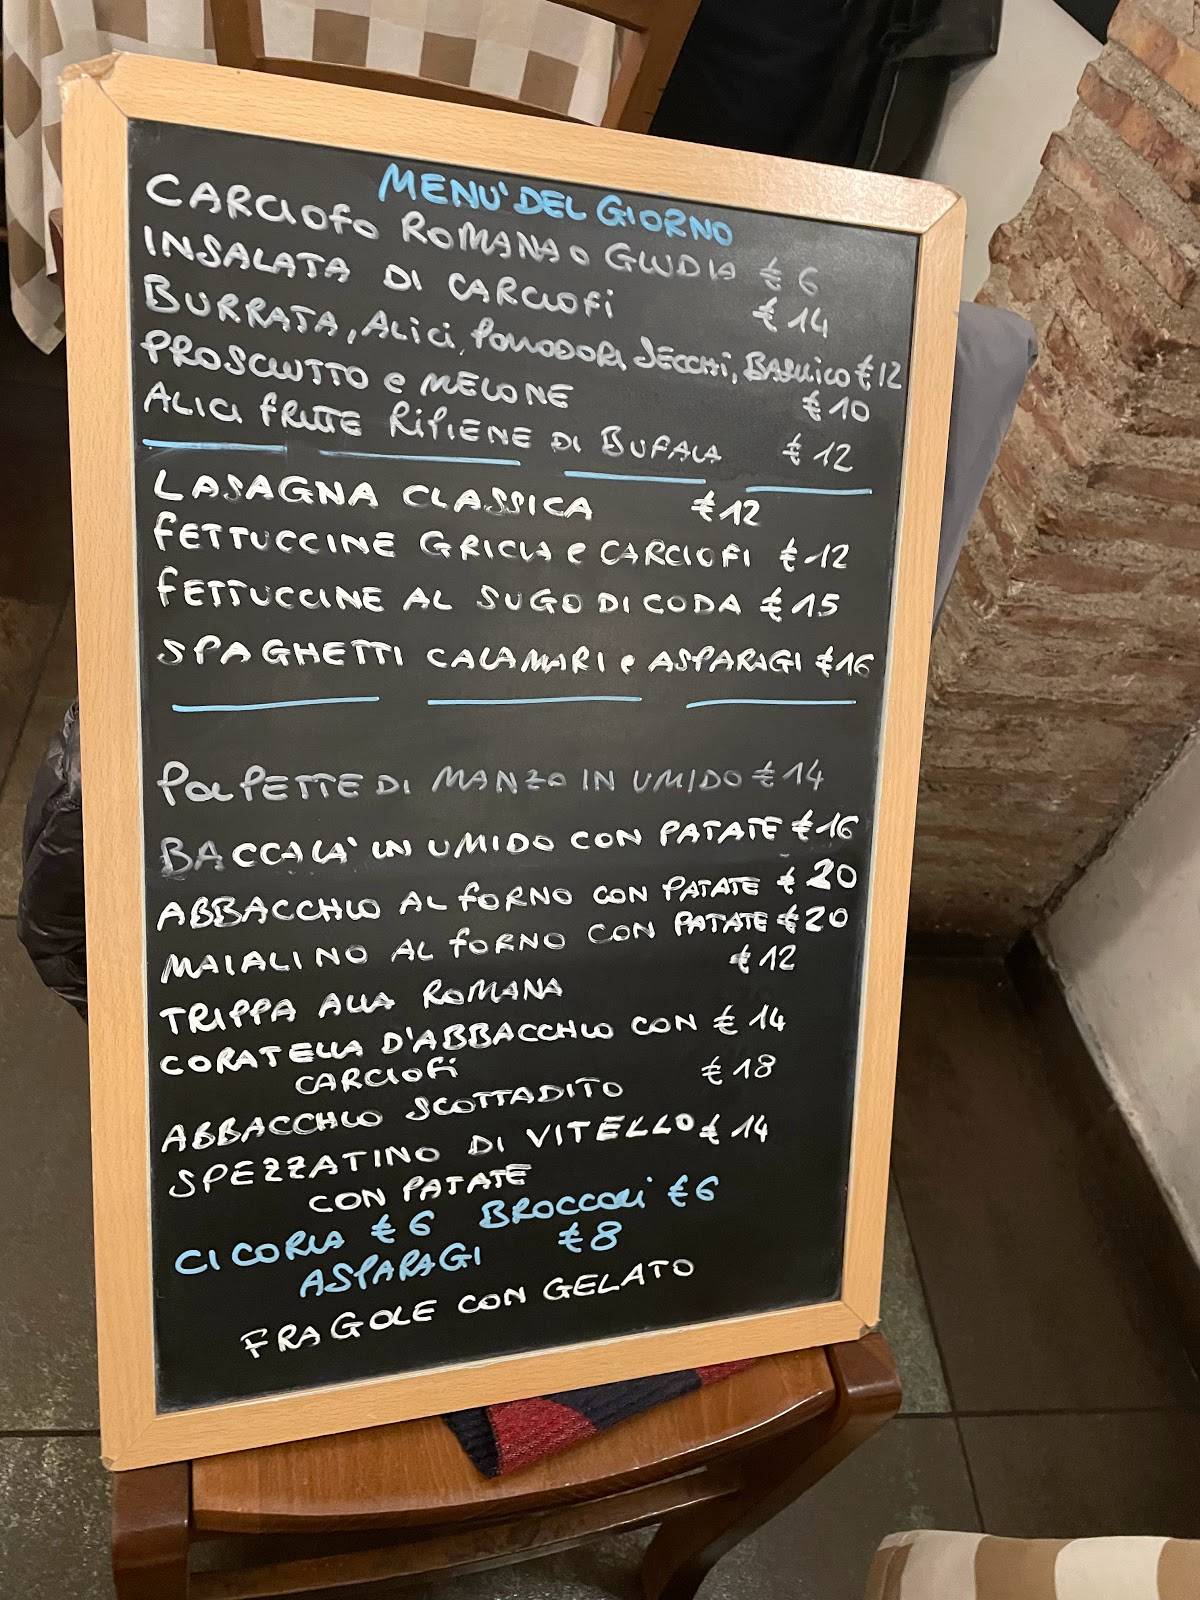 MENU' DEL GIORNO
CARCIOFO ROMANA O GIUDIA € 6
INSALATA DI CARCIOFI € 14
BURRATA, ALICI, POMODORI SECCHI, BASILICO € 12
PROSCIUTTO e MELONE € 10
ALICI FRITTE RIPIENE DI BUFALA € 12
LASAGNA CLASSICA € 12
FETTUCCINE GRICIA e CARCIOFI € 12
FETTUCCINE AL SUGO DI CODA € 15
SPAGHETTI CALAMARI e ASPARAGI € 16
POLPETTE DI MANZO IN UMIDO € 14
BACCALA' IN UMIDO CON PATATE € 16
ABBACCHIO AL FORNO CON PATATE € 20
MAIALINO AL FORNO CON PATATE € 20
TRIPPA ALLA ROMANA € 12
CORATELLA D'ABBACCHIO CON € 14
CARCIOFI
ABBACCHIO SCOTTADITO € 18
SPEZZATINO DI VITELLO € 14
CON PATATE
CICORIA € 6 BROCCOLI € 6
ASPARAGI € 8
FRAGOLE CON GELATO